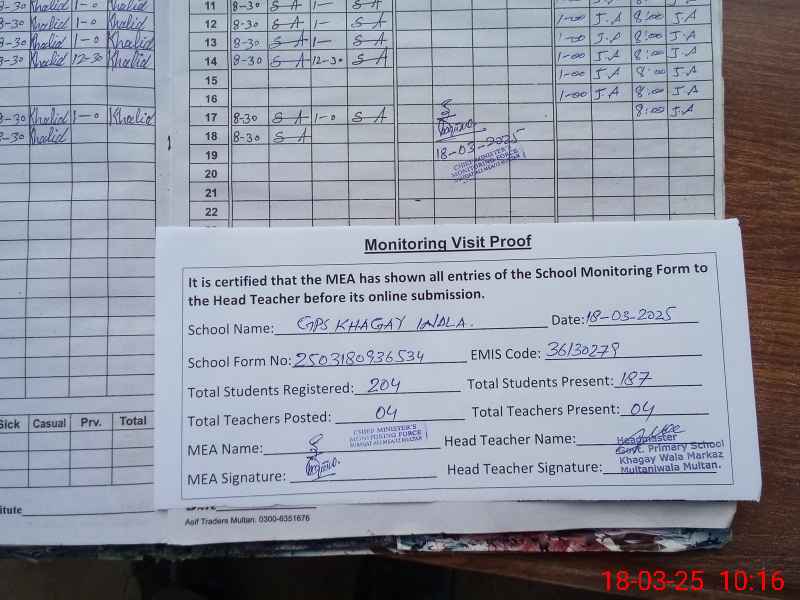 8-30 Khalid 1-0 Khalid
8-30 Khalid 1-0 Khalid
8-30 Khalid 1-0 Khalid
8-30 Khalid 12-30 Khalid
8-30 Khalid 1-0 Khalid
8-30 Khalid
11 8-30 S A 1- S A
12 8-30 S A 1- S A 1-00 J.A 8:00 J.A
13 8-30 S A 1- S A 1-00 J.A 8:00 J.A
14 8-30 S A 12-30 S A 1-00 J.A 8:00 J.A
15 1-00 J.A 8:00 J.A
16 1-00 J.A 8:00 J.A
17 8-30 S A 1-0 S A 8:00 J.A
18 8-30 S A
19
20
21
22
18-03-2025
CHIEF MINISTER'S
MONITORING FORCE
Monitoring Visit Proof
It is certified that the MEA has shown all entries of the School Monitoring Form to
the Head Teacher before its online submission.
School Name: GPS KHAGAY WALA. Date: 18-03-2025
School Form No: 2503180936534 EMIS Code: 36130279
Total Students Registered: 204 Total Students Present: 187
Total Teachers Posted: 04 Total Teachers Present: 04
MEA Name: CHIEF MINISTER'S
MONITORING FORCE
Head Teacher Name:
MEA Signature: Head Teacher Signature:
Headmaster
Govt. Primary School
Khagay Wala Markaz
Multaniwala Multan.
Sick Casual Prv. Total
itute
Asif Traders Multan. 0300-6351676
18-03-25 10:16